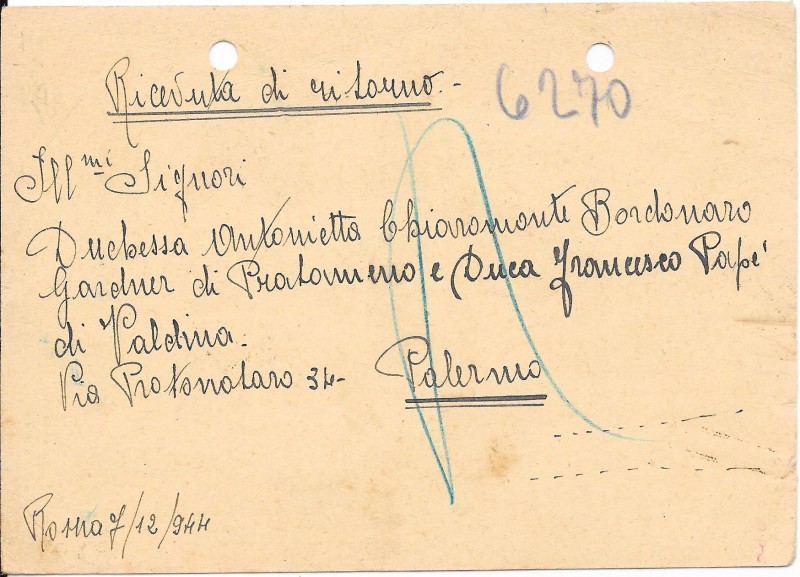 Ricevuta di ritorno.-
6270
Ill mi Signori
Duchessa Antonietta Chiaromonte Bordonaro
Gardner di Pratameno e Duca Francesco Papé
di Valdina.
Via Protonotaro 34-
Palermo
Roma 7/12/944